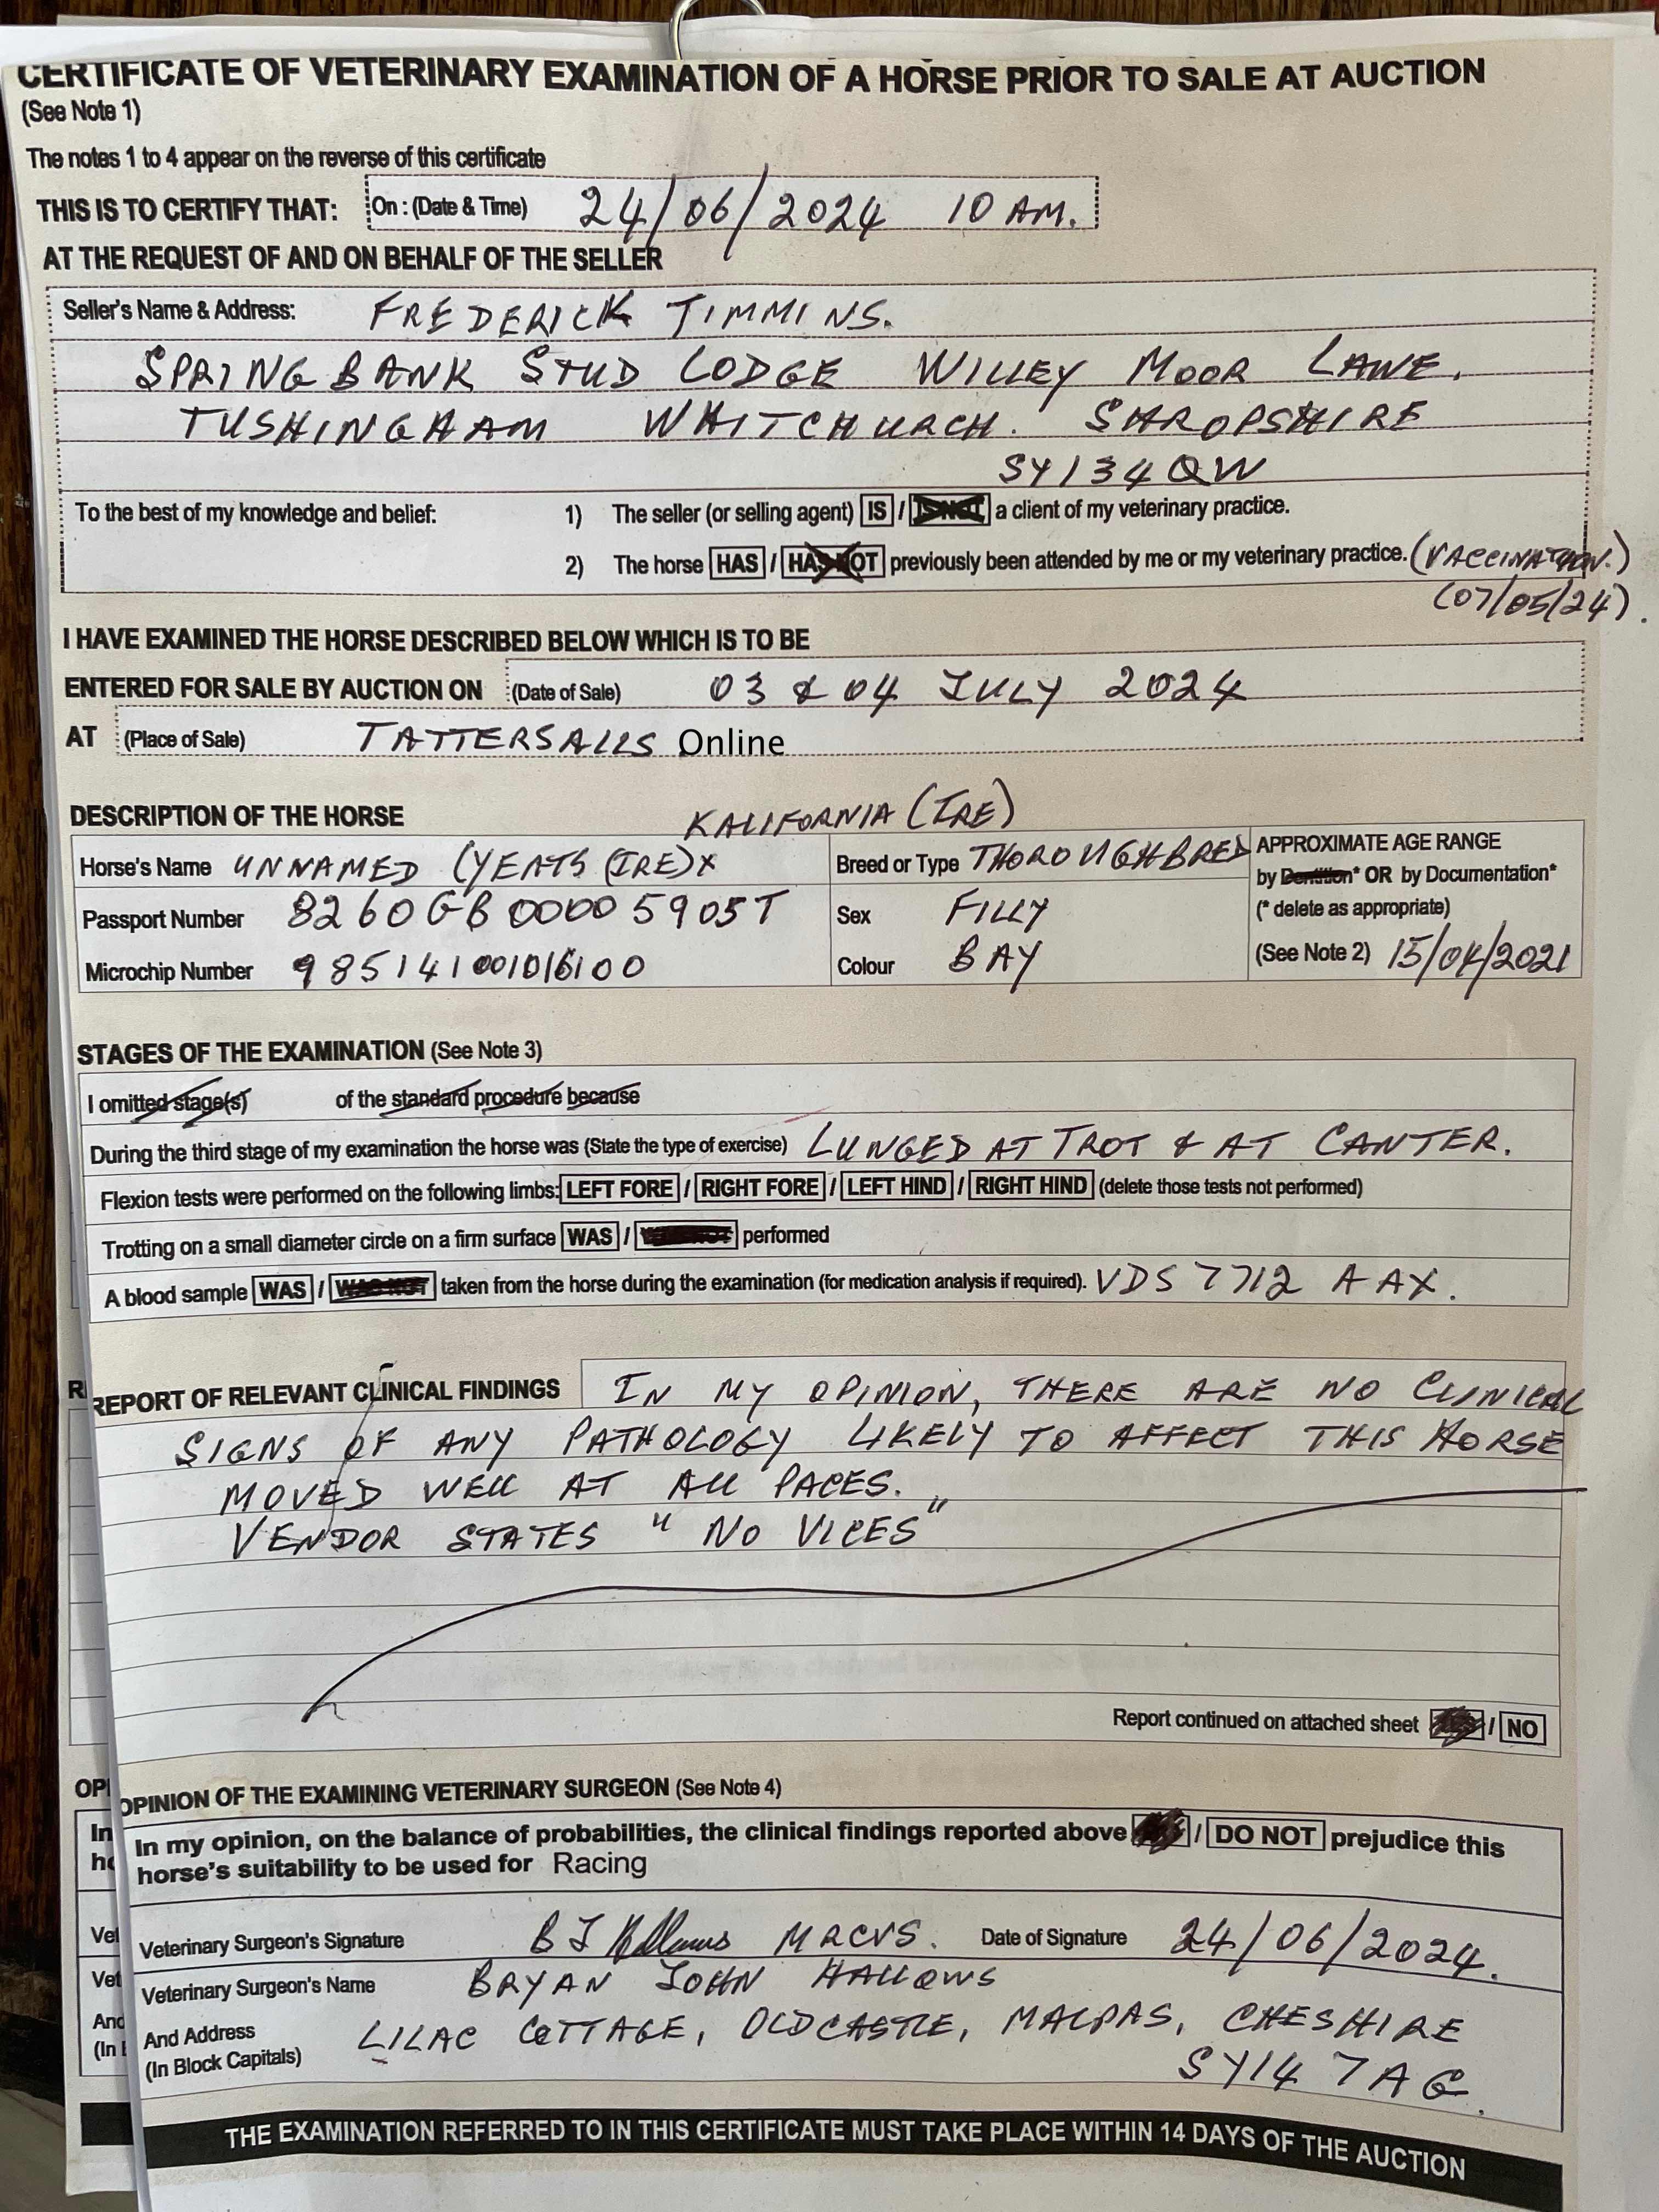 CERTIFICATE OF VETERINARY EXAMINATION OF A HORSE PRIOR TO SALE AT AUCTION
(See Note 1)
The notes 1 to 4 appear on the reverse of this certificate
THIS IS TO CERTIFY THAT: On : (Date & Time) 24/06/2024 10 AM.
AT THE REQUEST OF AND ON BEHALF OF THE SELLER
Seller's Name & Address: FREDERICK TIMMINS.
SPRING BANK STUD LODGE WILLEY MOOR LANE.
TUSHINGHAM WHITCHURCH. SHROPSHIRE
SY13 4QW
To the best of my knowledge and belief: 1) The seller (or selling agent) IS / IS NOT a client of my veterinary practice.
2) The horse HAS / HAS NOT previously been attended by me or my veterinary practice. (VACCINATION.)
(07/05/24).
I HAVE EXAMINED THE HORSE DESCRIBED BELOW WHICH IS TO BE
ENTERED FOR SALE BY AUCTION ON (Date of Sale) 03 & 04 JULY 2024
AT (Place of Sale) TATTERSALLS Online
DESCRIPTION OF THE HORSE KALIFORNIA (IRE)
Horse's Name UNNAMED (YEATS (IRE) x Breed or Type THOROUGHBRED APPROXIMATE AGE RANGE
by Dentition* OR by Documentation*
Passport Number 8260GB00005905T Sex FILLY (* delete as appropriate)
Microchip Number 985141001016100 Colour BAY (See Note 2) 15/04/2021
STAGES OF THE EXAMINATION (See Note 3)
I omitted stage(s) of the standard procedure because
During the third stage of my examination the horse was (State the type of exercise) LUNGED AT TROT & AT CANTER.
Flexion tests were performed on the following limbs: LEFT FORE / RIGHT FORE / LEFT HIND / RIGHT HIND (delete those tests not performed)
Trotting on a small diameter circle on a firm surface WAS / WAS NOT performed
A blood sample WAS / WAS NOT taken from the horse during the examination (for medication analysis if required). VDS 7712 AAX.
REPORT OF RELEVANT CLINICAL FINDINGS IN MY OPINION, THERE ARE NO CLINICAL
SIGNS OF ANY PATHOLOGY LIKELY TO AFFECT THIS HORSE
MOVED WELL AT ALL PACES.
VENDOR STATES "NO VICES"
Report continued on attached sheet / NO
OPINION OF THE EXAMINING VETERINARY SURGEON (See Note 4)
In my opinion, on the balance of probabilities, the clinical findings reported above / DO NOT prejudice this
horse's suitability to be used for Racing
Veterinary Surgeon's Signature BJ Hallows MRCVS. Date of Signature 24/06/2024.
Veterinary Surgeon's Name BRYAN JOHN HALLOWS
And Address LILAC COTTAGE, OLDCASTLE, MALPAS, CHESHIRE
(In Block Capitals) SY14 7AG.
THE EXAMINATION REFERRED TO IN THIS CERTIFICATE MUST TAKE PLACE WITHIN 14 DAYS OF THE AUCTION